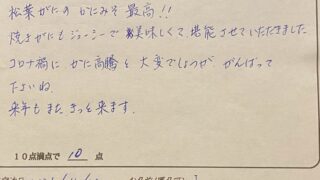 松葉がにの かにみそ 最高!!
焼きがにもジューシーで 美味しくて 堪能 させていただきました
コロナ禍に かに高騰と 大変でしょうが がんばって
たよいね
来年も また きっと 来ます。
10点満点で 10 点